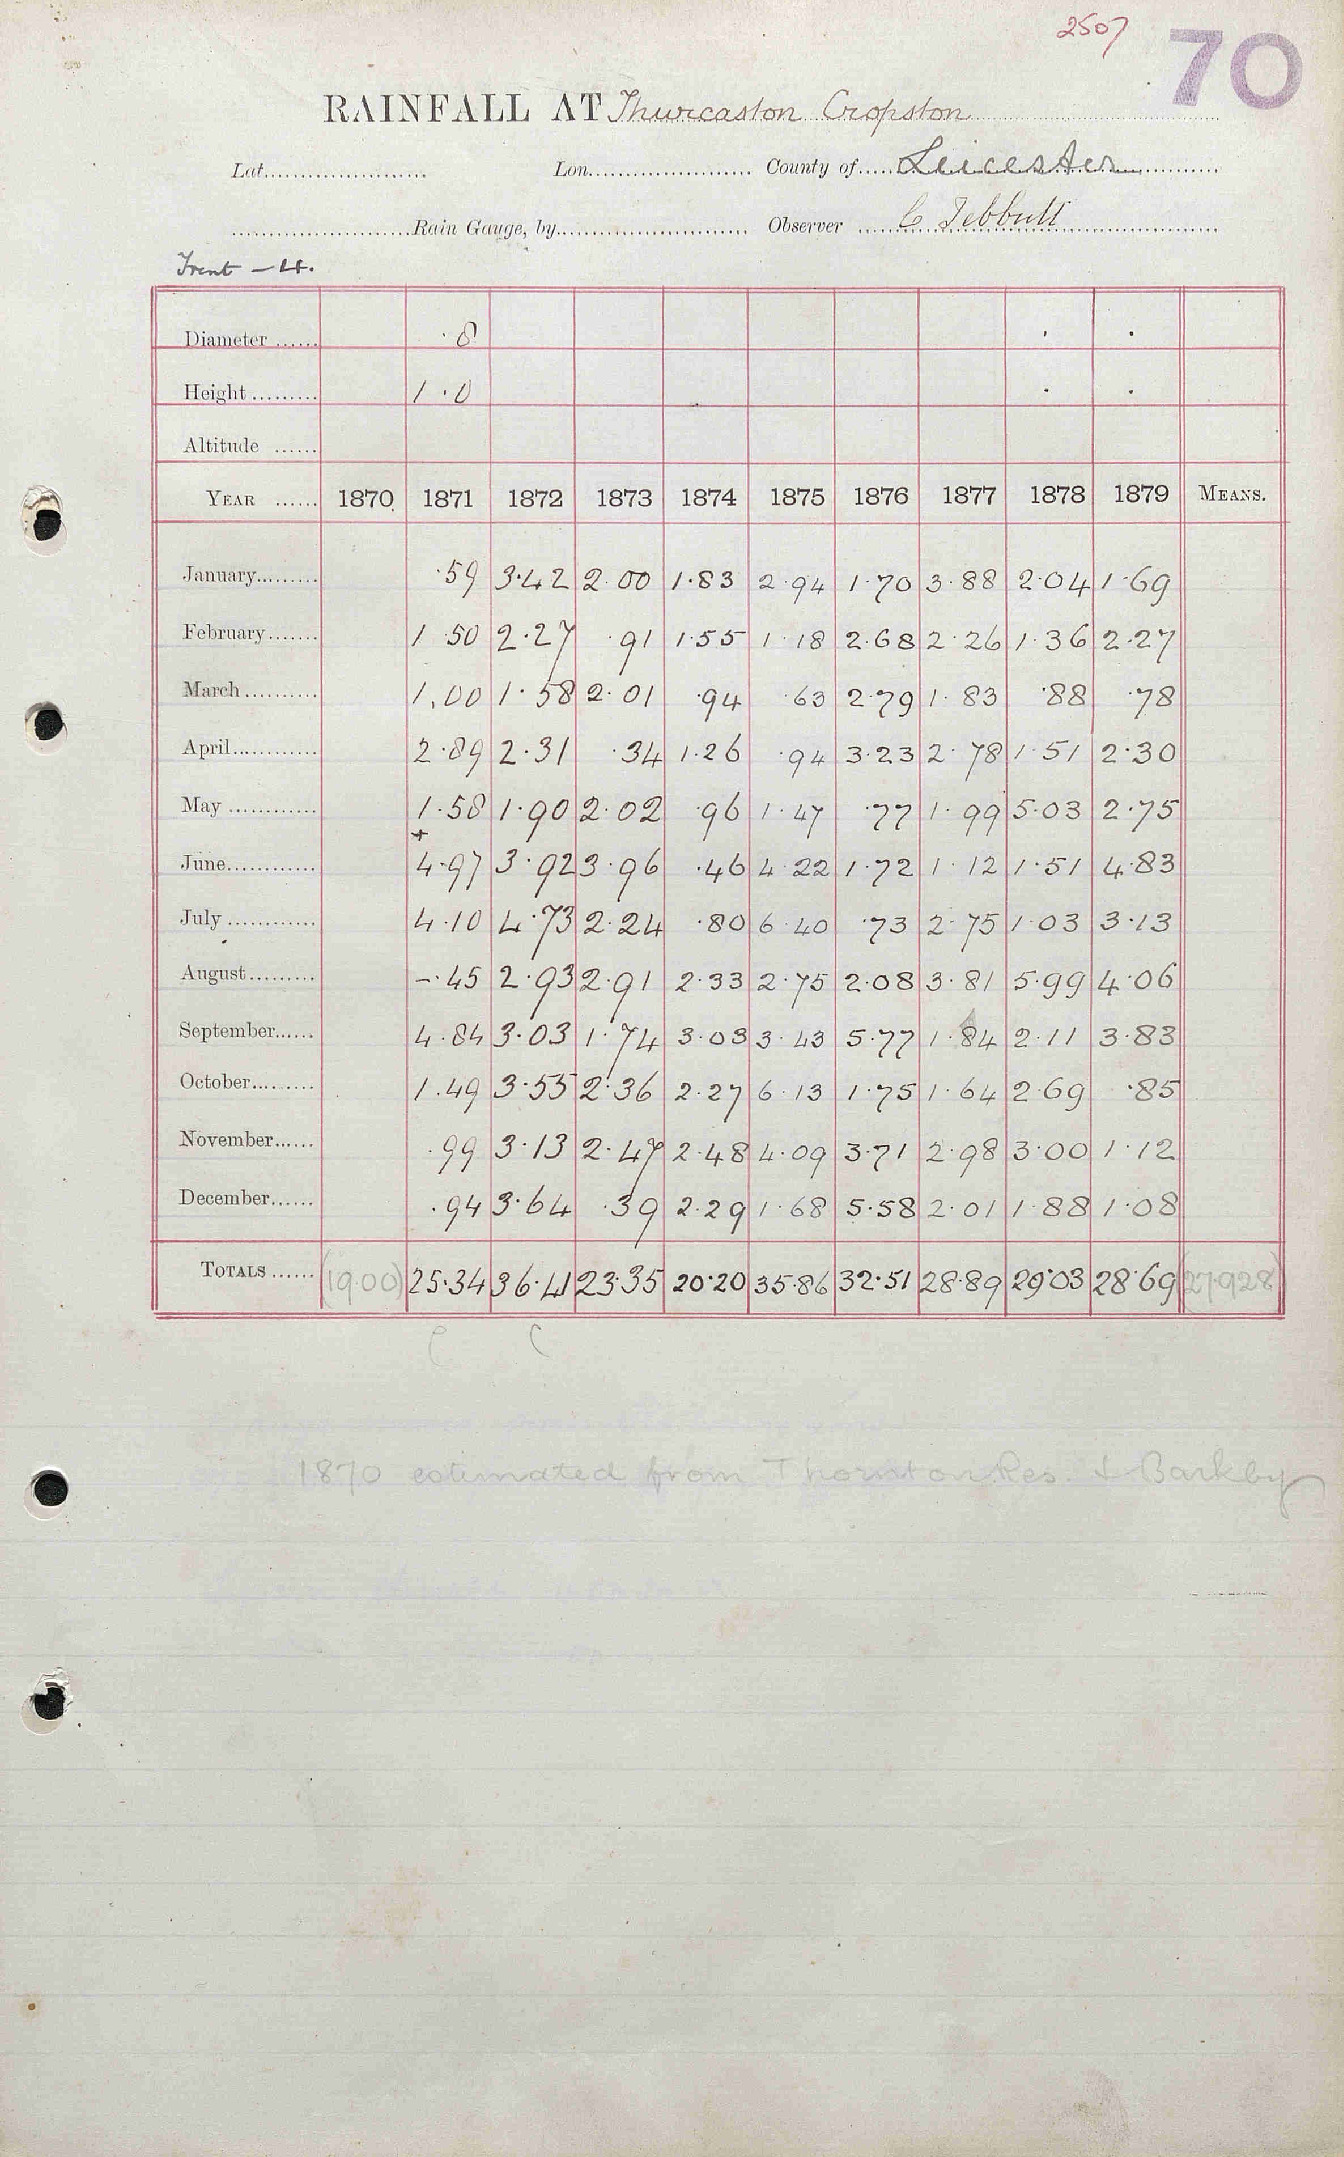 2507
70
RAINFALL AT Thurcaston Cropston
Lat. Lon. County of Leicester
Rain Gauge, by Observer C Tebbutt
Trent - 4.
Diameter ·8
Height 1·0
Altitude
YEAR 1870 1871 1872 1873 1874 1875 1876 1877 1878 1879 MEANS.
January ·59 3·42 2·00 1·83 2·94 1·70 3·88 2·04 1·69
February 1·50 2·27 ·91 1·55 1·18 2·68 2·26 1·36 2·27
March 1.00 1·58 2·01 ·94 ·63 2·79 1·83 ·88 ·78
April 2·89 2·31 ·34 1·26 ·94 3·23 2·78 1·51 2·30
May 1·58 1·90 2·02 ·96 1·47 ·77 1·99 5·03 2·75
+
June 4·97 3·92 3·96 ·46 4·22 1·72 1·12 1·51 4·83
July 4·10 4·73 2·24 ·80 6·40 ·73 2·75 1·03 3·13
August -·45 2·93 2·91 2·33 2·75 2·08 3·81 5·99 4·06
September 4·84 3·03 1·74 3·03 3·43 5·77 1·84 2·11 3·83
October 1·49 3·55 2·36 2·27 6·13 1·75 1·64 2·69 ·85
November ·99 3·13 2·47 2·48 4·09 3·71 2·98 3·00 1·12
December ·94 3·64 ·39 2·29 1·68 5·58 2·01 1·88 1·08
TOTALS (19·00) 25·34 36·41 23·35 20·20 35·86 32·51 28·89 29·03 28·69 (27·928)
1870 estimated from Thornton Res. & Barkby